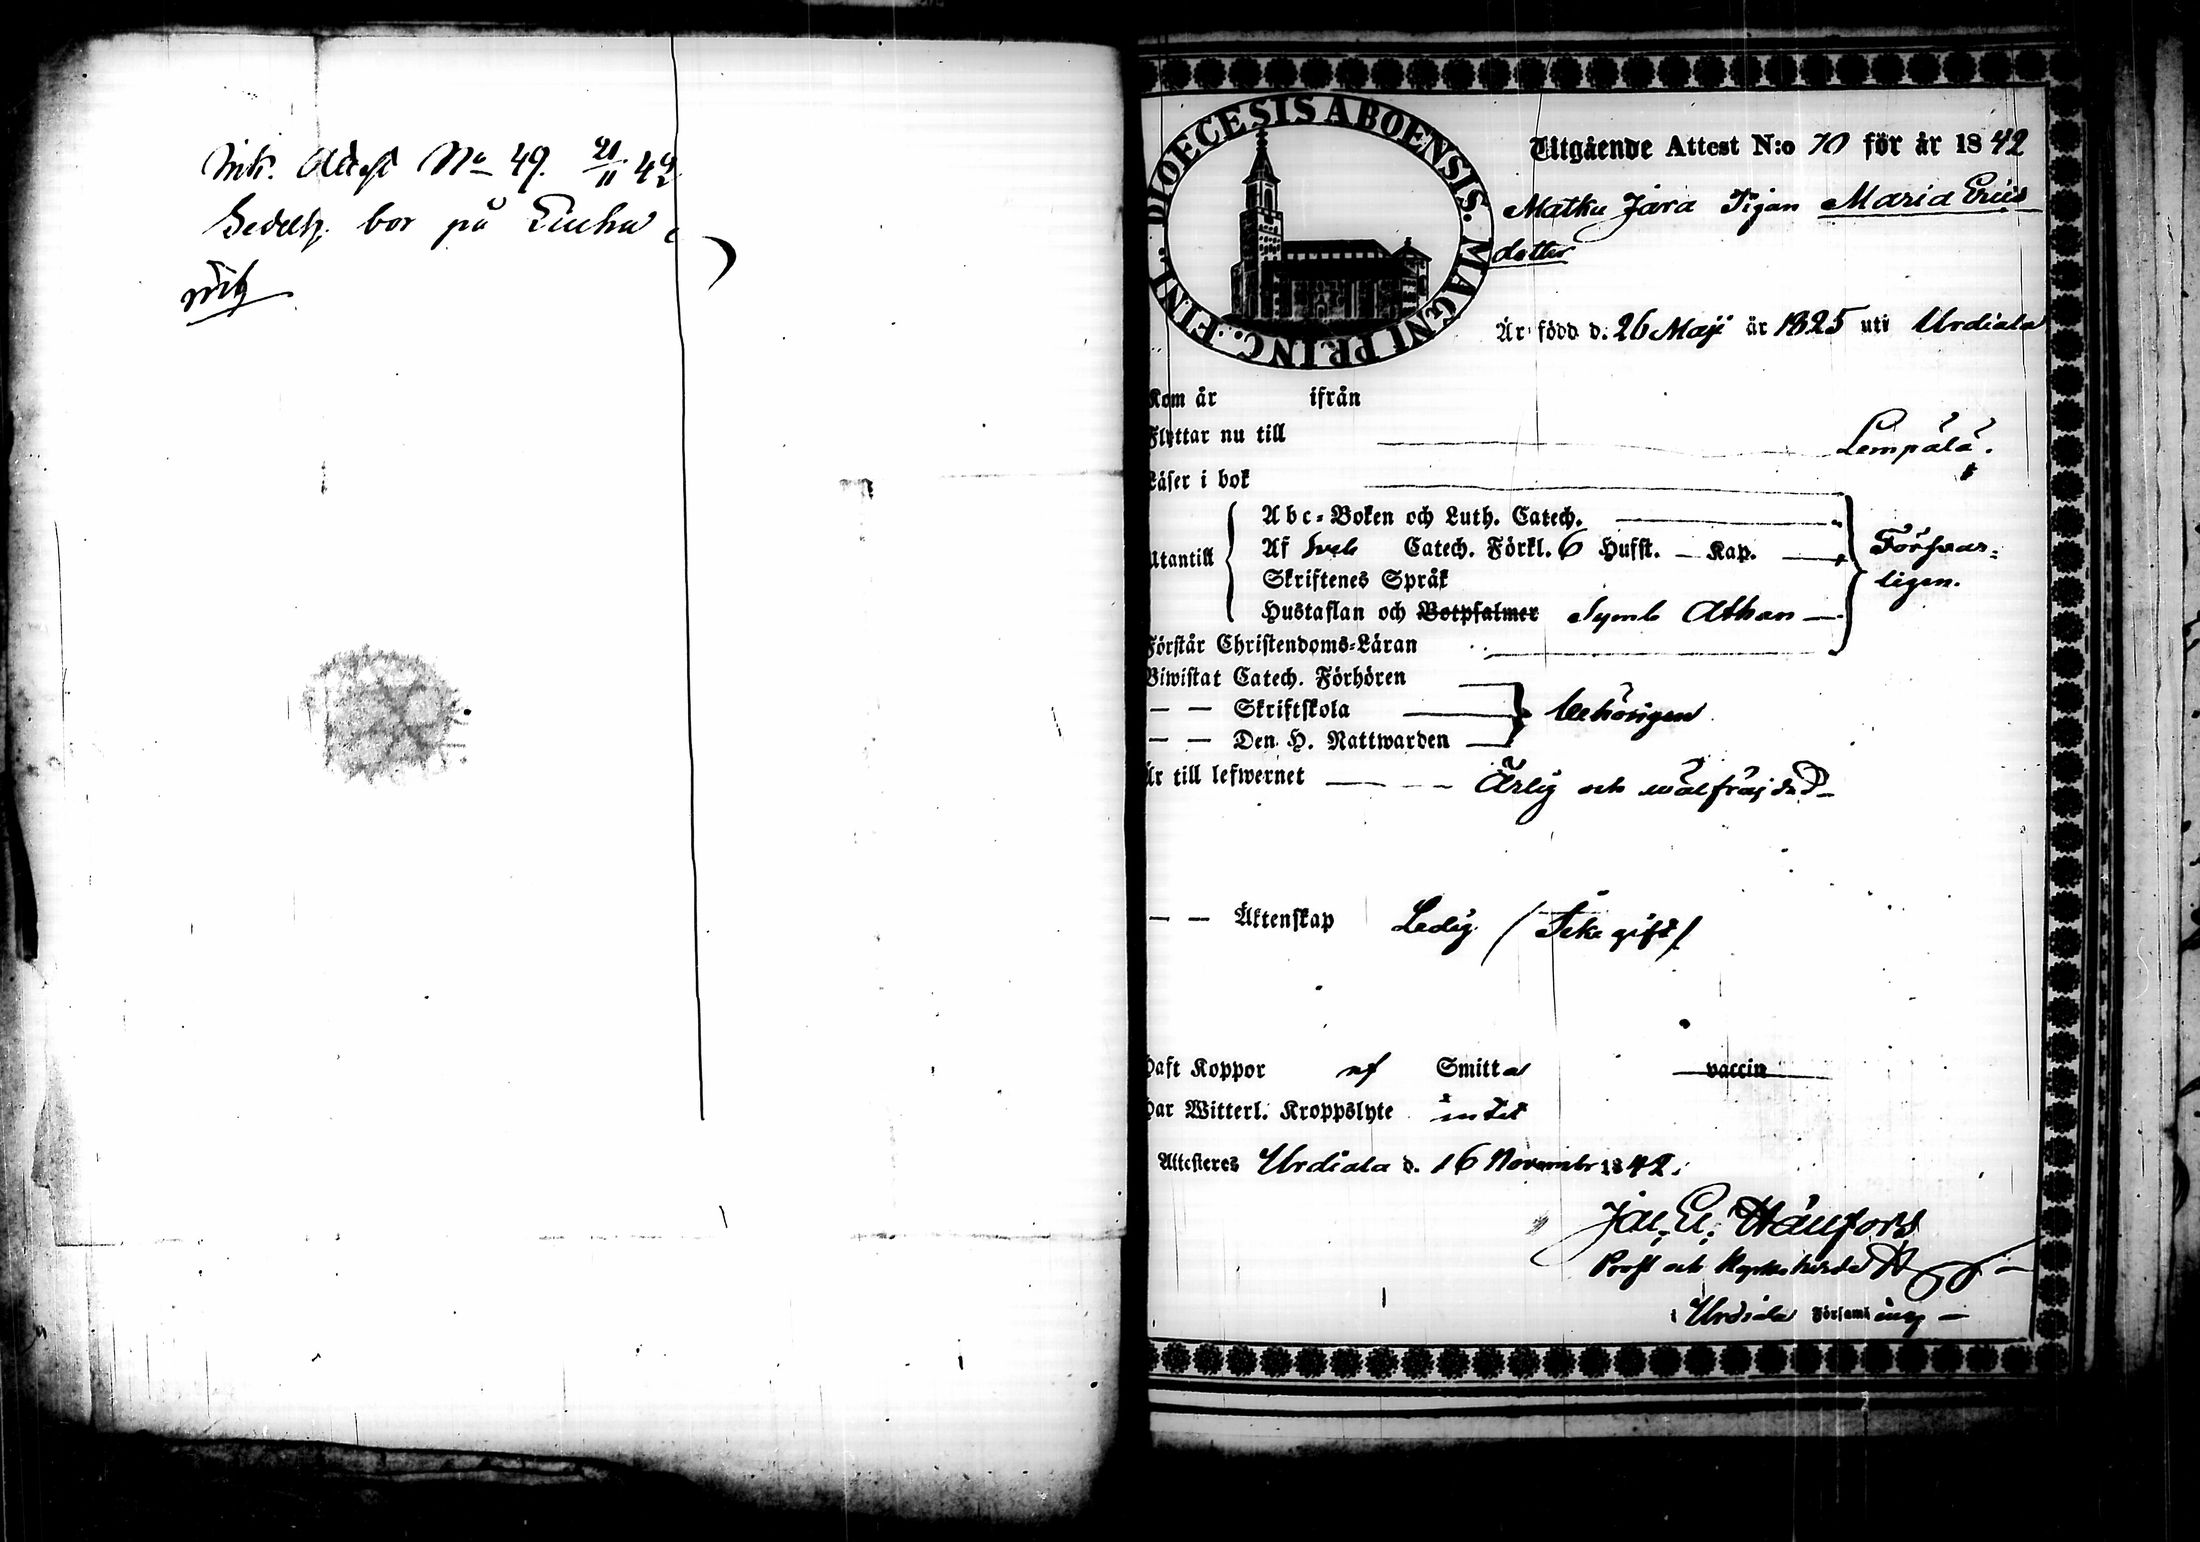 Ink. Attest No 49. 21/11 42
bor på
DIOECESIS ABOENSIS. MAGNI PRINC. FINL.
Utgående Attest N:o 70 för år 1842
Matku Jara Pigan Maria Erics
dotter
Är född d. 26 Maji år 1825 uti Urdiala
Kom år ifrån
Flyttar nu till Lempälä.
Läser i bok
Abc-Boken och Luth. Catech.
Utantill Af Sveb Catech. Förkl. 6 Hufst. — Kap. Försvar-
ligen.
Skriftenes Språk
Hustaflan och Botpsalmer Symb Athan —
Förstår Christendoms-Läran
Biwistat Catech. Förhören
— — Skriftskola behörigen
— — Den H. Nattwarden
Är till lefwernet — — — Ärlig och wälfräjdad —
— — Äktenskap Ledig (Icke gift)
Haft Koppor af Smitta vaccin
Har Witterl. Kroppslyte intet
Attesteres Urdiala d. 16 November 1842.
Prost och Kyrkoherde
i Urdiala Församling —